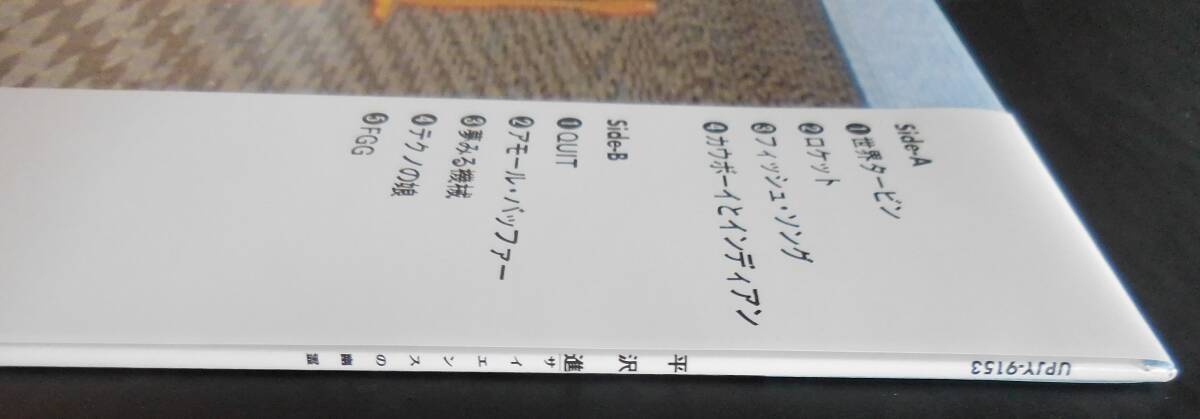 Side-A
❶世界タービン
❷ロケット
❸フィッシュ・ソング
❹カウボーイとインディアン
Side-B
❶QUIT
❷アモール・バッファー
❸夢みる機械
❹テクノの娘
❺FGG
平沢進 サイエンスの幽霊
UPJY-9153